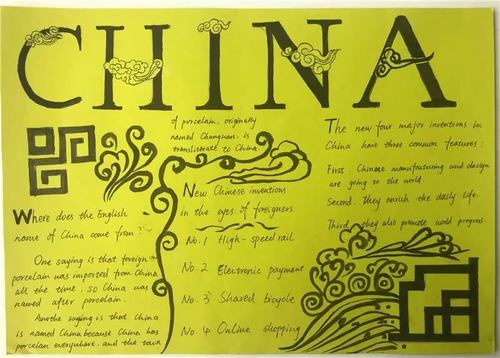 CHINA
Where does the English
name of China come from?
One saying is that foreign
porcelain was imported from China
all the time, so China was
named after porcelain.
Another saying is that China
is named China because China has
porcelain everywhere, and the town
of porcelain, originally
named Changnan, is
transliterate to China.
New Chinese inventions
in the eyes of foreigners
No.1 High-speed rail
No.2 Electronic payment
No.3 Shared bicycle
No.4 Online shopping
The new four major inventions in
China have three common features:
First. Chinese manufacturing and design
are going to the world.
Second. They enrich the daily life.
Third, they also promote world progress.